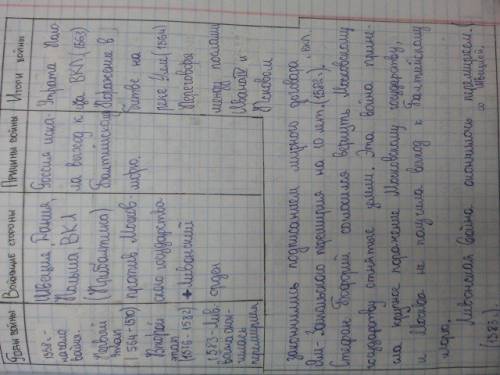 Годы войны
Воюющие стороны
Причины войны
Итоги войны
1558г.-
начало
войны.
Первый
этап
1564-1570)
Второй
этап
(1576-1582)
1583-Лив.
война окон-
чилась
перемирием
Швеция, Дания,
Польша ВКЛ
(Прибалтика)
против Москов-
ского государства
+ Ливонский
орден
Россия иска-
ла выход к
Балтийскому
морю.
Утрата Поло-
цка ВКЛ (1563)
Поражение в
битве на
реке Уле (1564)
Переговоры
между послами
Ивана IV и
Псковом
закончились подписанием мирного договора
Ям-Запольского перемирия на 10 лет. (1582г.),
Стефан Баторий согласился вернуть Московскому
государству отнятые земли. Эта война прине-
сла крупное поражение Московскому государству,
и Москва не получила выход к Балтийскому
морю. Ливонская война окончилась перемирием с Швецией.
(1583.)